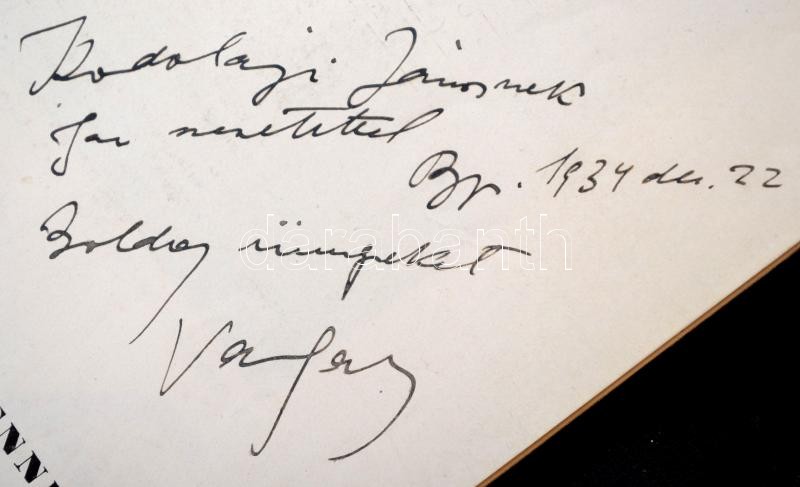 Kodolányi Jánosnak
szeretettel
Bp. 1934 dec. 22
Boldog ünnepeket
darabanth
ENNI